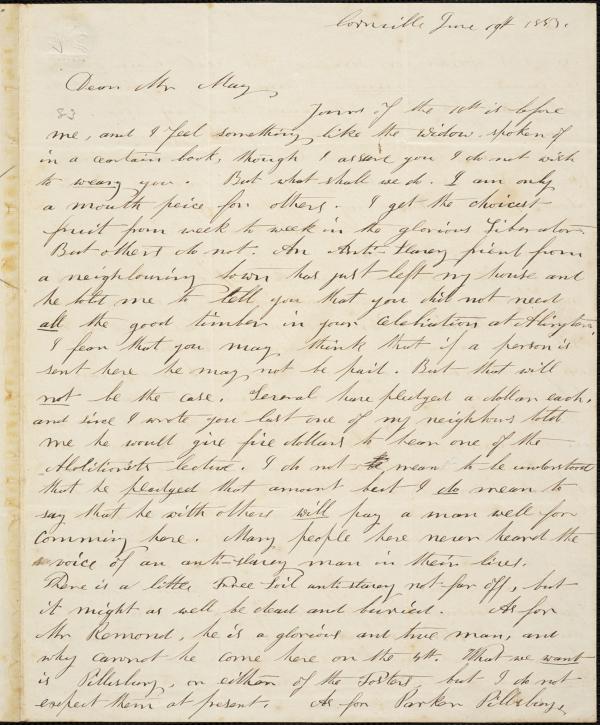 Cornville June 19th 1853.
Dear Mr May,
83
Yours of the 10th is before
me, and I feel something like the widow, spoken of
in a certain book, though I assure you I do not wish
to weary you. But what shall we do. I am only
a mouth peice for others. I get the choicest
fruit from week to week in the glorious Liberator.
But others do not. An Anti-Slavery friend from
a neighbouring town has just left my house and
he told me to tell you that you did not need
all the good timber in your celebration at Abington.
I fear that you may think that if a person is
sent here he may not be paid. But that will
not be the case. Several have pledged a dollar each,
and since I wrote you last one of my neighbours told
me he would give five dollars to hear one of the
Abolitionists lecture. I do not mean to be understood
that he pledged that amount but I do mean to
say that he with others will pay a man well for
comming here. Many people here never heard the
voice of an anti-slavery man in their lives.
There is a little Free Soil anti-slavery not far off, but
it might as well be dead and buried. As for
Mr Remond, he is a glorious and true man, and
why cannot he come here on the 4th. What we want
is Pillsbury, or either of the Fosters, but I do not
expect them at present. As for Parker Pillsbury,